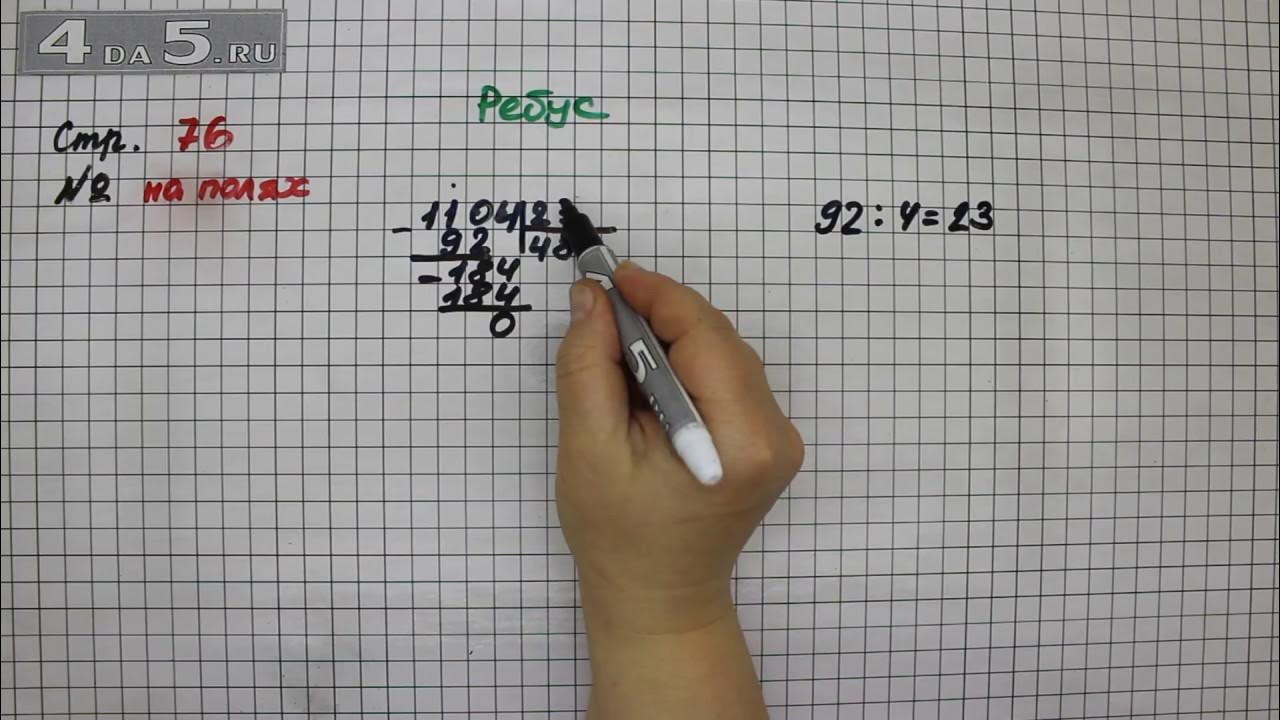 4DA5.RU
Ребус
Стр. 76
№2 на полях
1104 23
- 92 48
- 184
184
0
92 : 4 = 23
5